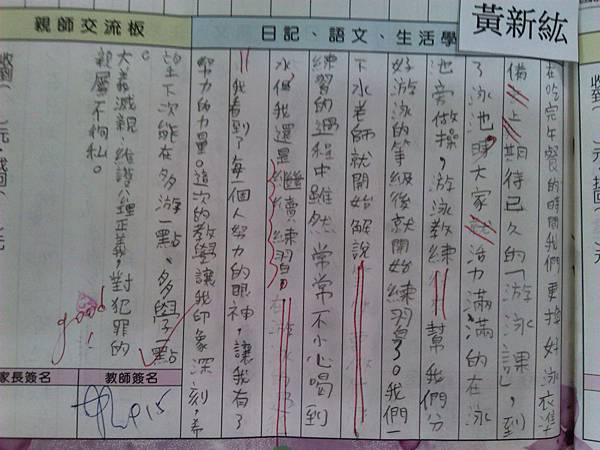 黃新紘
日記、語文、生活學
親師交流板
在吃完午餐的時間我們更換好泳衣準
備上期待已久的「游泳課」,到
了泳池,大家就活力滿滿的在泳
池旁做操,游泳教練幫我們分
好游泳的等級後就開始練習了。我們一
下水老師就開始解說
練習的過程中雖然常常不小心喝到
水,但我還是繼續練習。
我看到了每一個人努力的眼神,讓我有了
努力的力量。這次的教學讓我印象深刻,希
望下次能在多游一點、多學一點
。
大義滅親:維護公理正義,對犯罪的
親屬不徇私。
good!
家長簽名
教師簽名